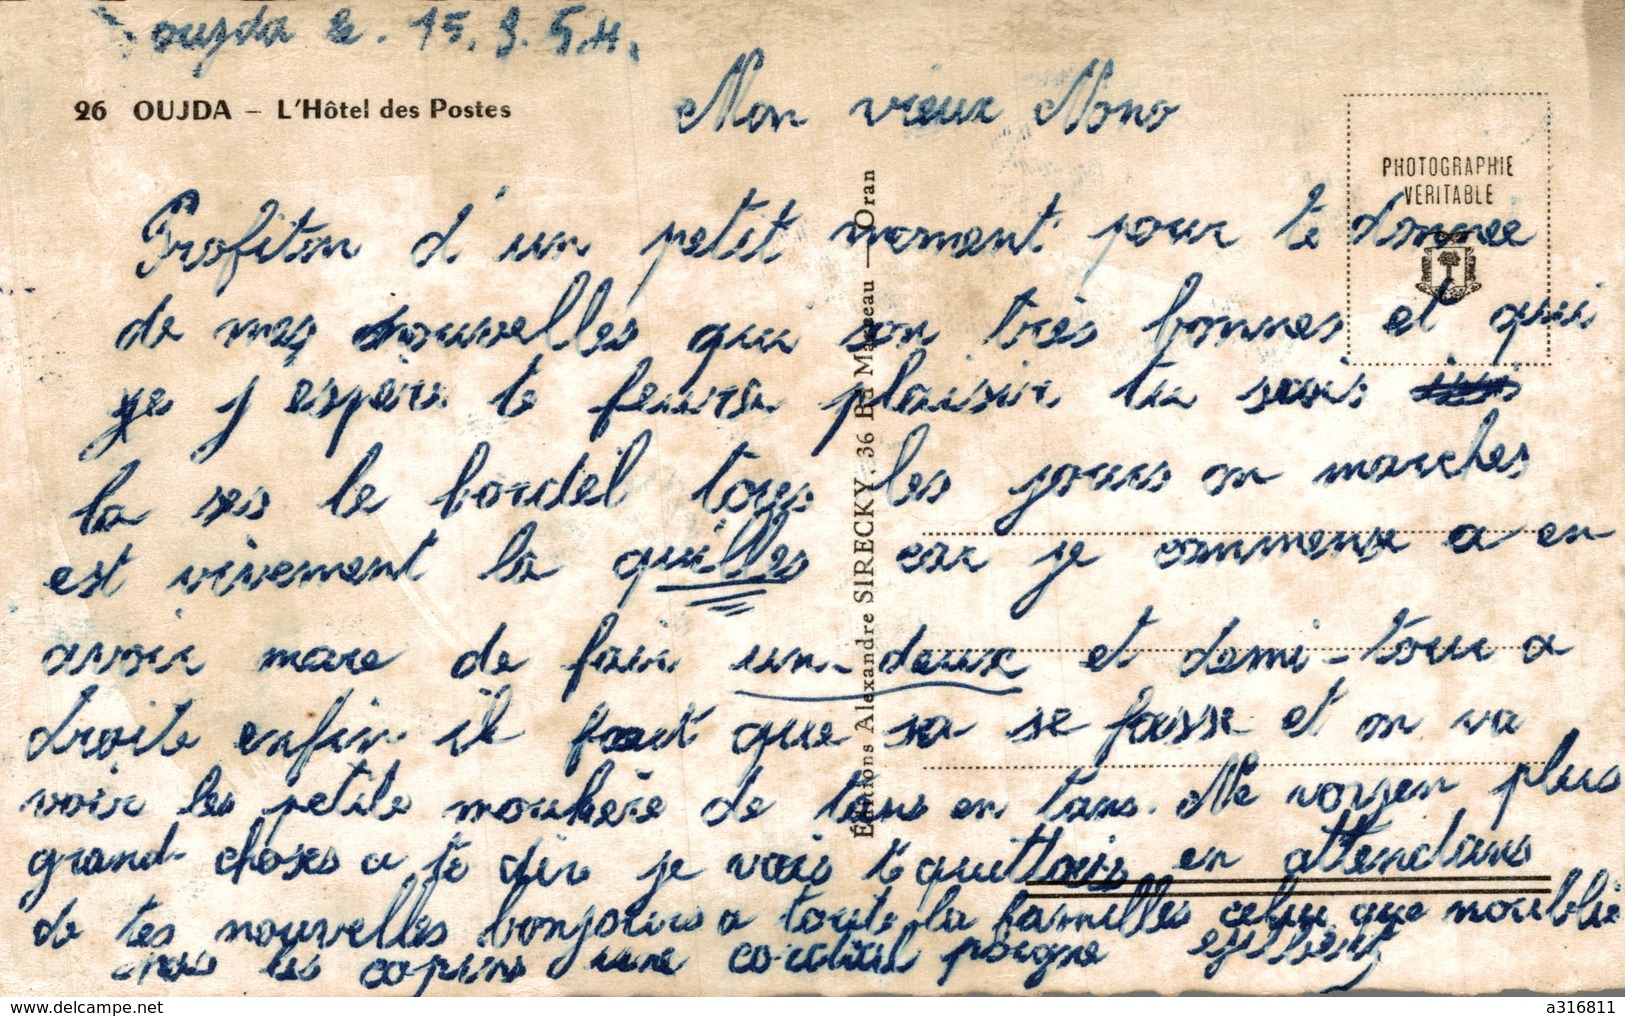 oujda le. 15. 9. 54.
26 OUJDA – L'Hôtel des Postes
Mon vieux Nono
PHOTOGRAPHIE
VÉRITABLE
Profiton d'un petit moment pour te donnee
de mes nouvelles qui son très bonnes et qui
je j'espère te feura plaisir tu sais
la ses le bordel tous les jours on marches
est vivement la quilles car je commense a en
avoir mare de fair un-deux et demi-tour a
droite enfin il faut que sa se fasse et on va
voir les petite moukère de tans en tans. Ne voyen plus
grand choses a te dir je vais te quittais en attendans
de tes nouvelles bonjours a toute la familles celui que n'oublie
pas les copins une cordial poigne
Éditions Alexandre SIRECKY, 36 Bd Marceau — Oran
delcampe.net
a316811